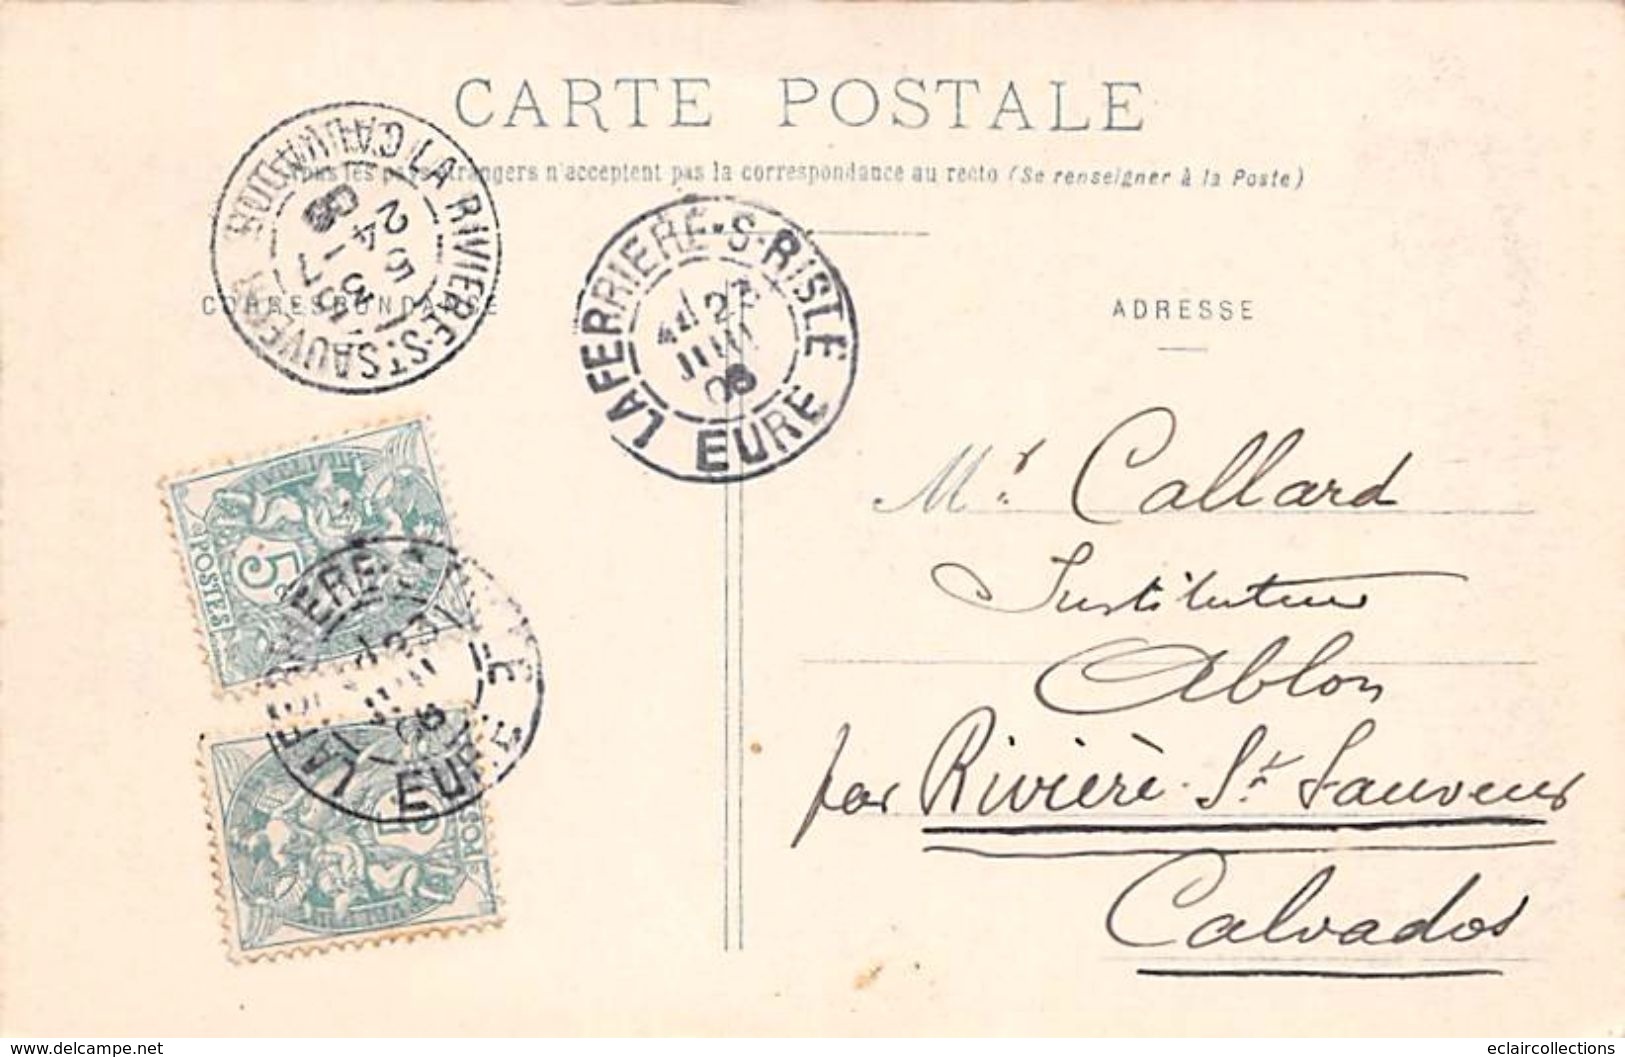 CARTE POSTALE
Tous les pays étrangers n'acceptent pas la correspondance au recto (Se renseigner à la Poste)
LA RIVIERE-St SAUVEUR CALVADOS
24
LAFERRIERE-S-RISLE
JUIN
08
EURE
CORRESPONDANCE
ADRESSE
Mr Callard
Instituteur
Ablon
par Rivière-St Sauveur
Calvados
5c
POSTES
LAFERRIERE
EURE
www.delcampe.net
eclaircollections